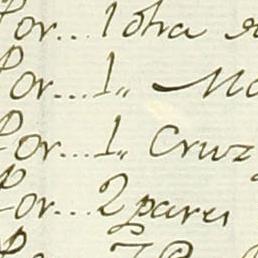 Por... 1 otra
Por... 1,, Ma
Por... 1,, Cruz
Por... 2 pares
Por...